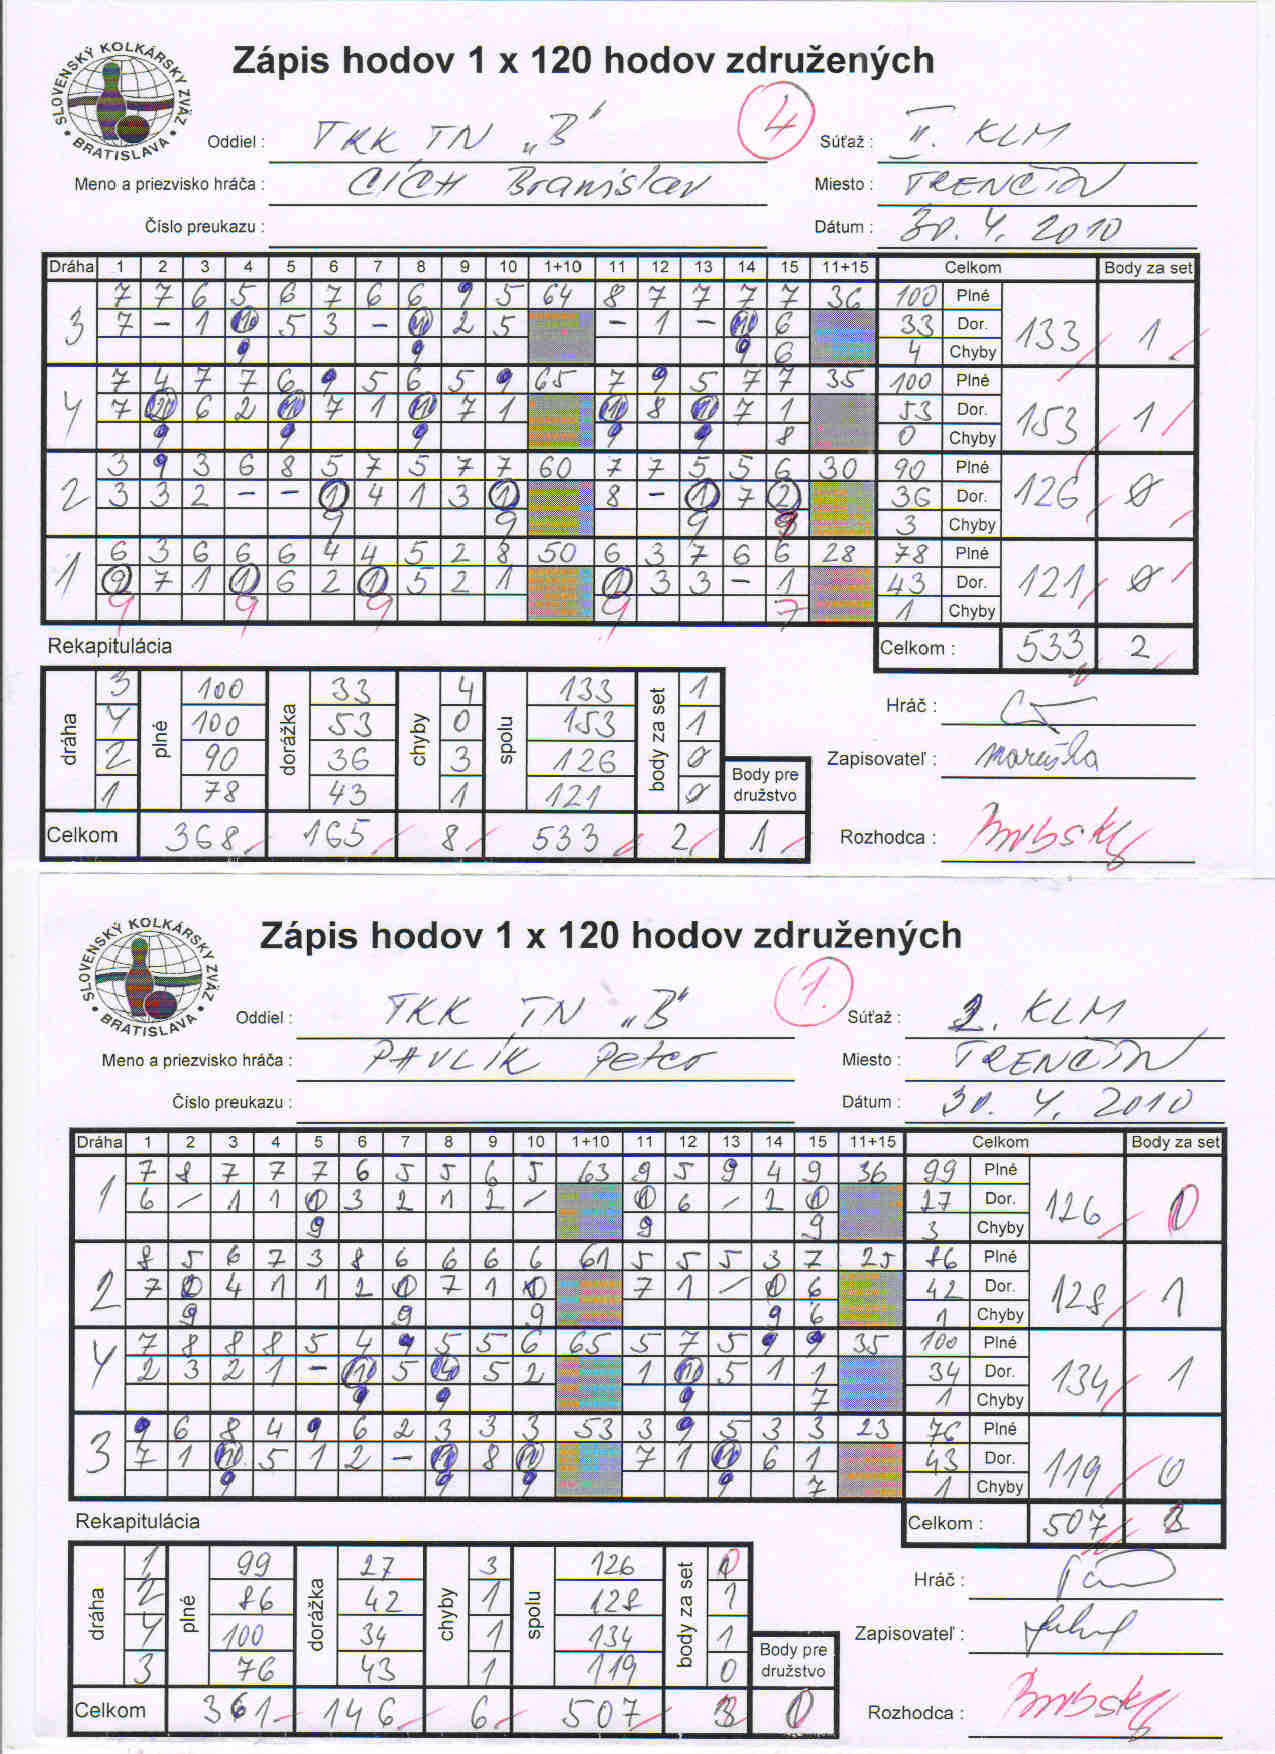 SLOVENSKÝ KOLKÁRSKY ZVÄZ • BRATISLAVA •
Zápis hodov 1 x 120 hodov združených
4
Oddiel : TKK TN „B“ Súťaž : II. KLM
Meno a priezvisko hráča : CÍCH Branislav Miesto : TRENČÍN
Číslo preukazu : Dátum : 30. 4. 2010
Dráha 1 2 3 4 5 6 7 8 9 10 1+10 11 12 13 14 15 11+15 Celkom Body za set
7 7 6 5 6 7 6 6 9 5 64 8 7 7 7 7 36 100 Plné
3 7 – 1 1 5 3 – 1 2 5 – 1 – 1 6 33 Dor. 133 1
9 9 9 6 4 Chyby
7 4 7 7 6 9 5 6 5 9 65 7 9 5 7 7 35 100 Plné
4 7 6 2 1 7 1 1 7 1 1 8 1 7 1 53 Dor. 153 1
9 9 9 9 9 8 0 Chyby
3 9 3 6 8 5 7 5 7 7 60 7 7 5 5 6 30 90 Plné
2 3 3 2 – – 1 4 1 3 1 8 – 1 7 2 36 Dor. 126 0
9 9 9 3 Chyby
6 3 6 6 6 4 4 5 2 8 50 6 3 7 6 6 28 78 Plné
1 2 7 1 1 6 2 1 5 2 1 1 3 3 – 1 43 Dor. 121 0
9 9 9 9 7 1 Chyby
Rekapitulácia Celkom : 533 2
dráha plné dorážka chyby spolu body za set
3 100 33 4 133 1
4 100 53 0 153 1
2 90 36 3 126 0
1 78 43 1 121 0
Body pre družstvo
Celkom 368 165 8 533 2 1
Hráč :
Zapisovateľ :
Rozhodca :
SLOVENSKÝ KOLKÁRSKY ZVÄZ • BRATISLAVA •
Zápis hodov 1 x 120 hodov združených
1.
Oddiel : TKK TN „B“ Súťaž : 2. KLM
Meno a priezvisko hráča : PAVLÍK Peter Miesto : TRENČÍN
Číslo preukazu : Dátum : 30. 4. 2010
Dráha 1 2 3 4 5 6 7 8 9 10 1+10 11 12 13 14 15 11+15 Celkom Body za set
7 8 7 7 7 6 5 5 6 5 63 9 5 9 4 9 36 99 Plné
1 6 – 1 1 1 3 2 1 2 – 1 6 – 2 1 27 Dor. 126 0
9 9 9 3 Chyby
8 5 6 7 3 8 6 6 6 6 61 5 5 5 3 7 25 86 Plné
2 7 1 4 1 1 2 1 7 1 1 7 1 – 1 6 42 Dor. 128 1
9 9 9 9 6 1 Chyby
7 8 8 8 5 4 9 5 5 6 65 5 7 5 9 9 35 100 Plné
4 2 3 2 1 – 1 5 4 5 2 1 1 5 1 1 34 Dor. 134 1
9 9 9 7 1 Chyby
9 6 8 4 9 6 2 3 3 3 53 3 9 5 3 3 23 76 Plné
3 7 1 1 5 1 2 – 1 8 1 7 1 1 6 1 43 Dor. 119 0
9 9 9 7 1 Chyby
Rekapitulácia Celkom : 507
dráha plné dorážka chyby spolu body za set
1 99 27 3 126 0
2 86 42 1 128 1
4 100 34 1 134 1
3 76 43 1 119 0
Body pre družstvo
Celkom 361 146 6 507 0
Hráč :
Zapisovateľ :
Rozhodca :